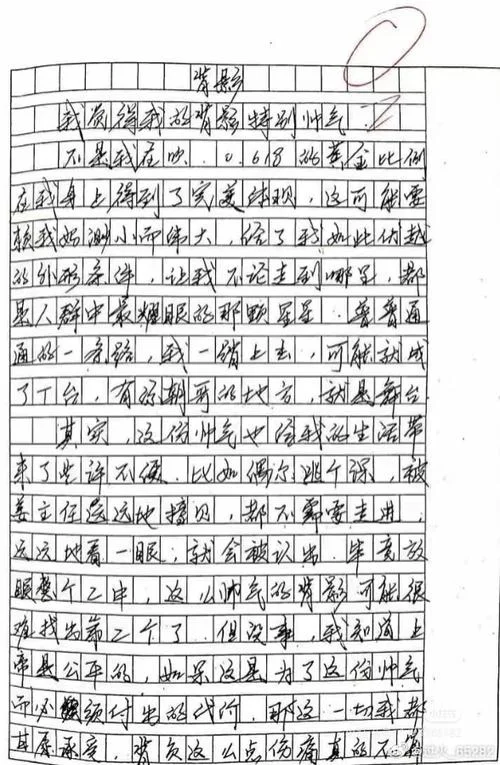 背影
我觉得我的背影特别帅气.
不是我在吹.0.618的黄金比例
在我身上得到了完美体现,这可能要
赖我妈渺小而伟大,给了我如此优越
的外形条件,让我不论走到哪里,都
是人群中最耀眼的那颗星星.普普通
通的一条路,我一踏上去,可能就成
了T台,有涵朝哥的地方,就是舞台.
其实,这份帅气也给我的生活带
来了些许不便.比如偶尔逃个课,被
姜主任远远地撞见,都不需要走进,
远远地看一眼,就会被认出.毕竟放
眼整个二中,这么帅气的背影可能很
难找出第二个了.但没事,我知道上
帝是公平的,如果这是为了这份帅气
而必须付出的代价.那这一切我都
甘愿承受,背负这么点伤痛真的不算